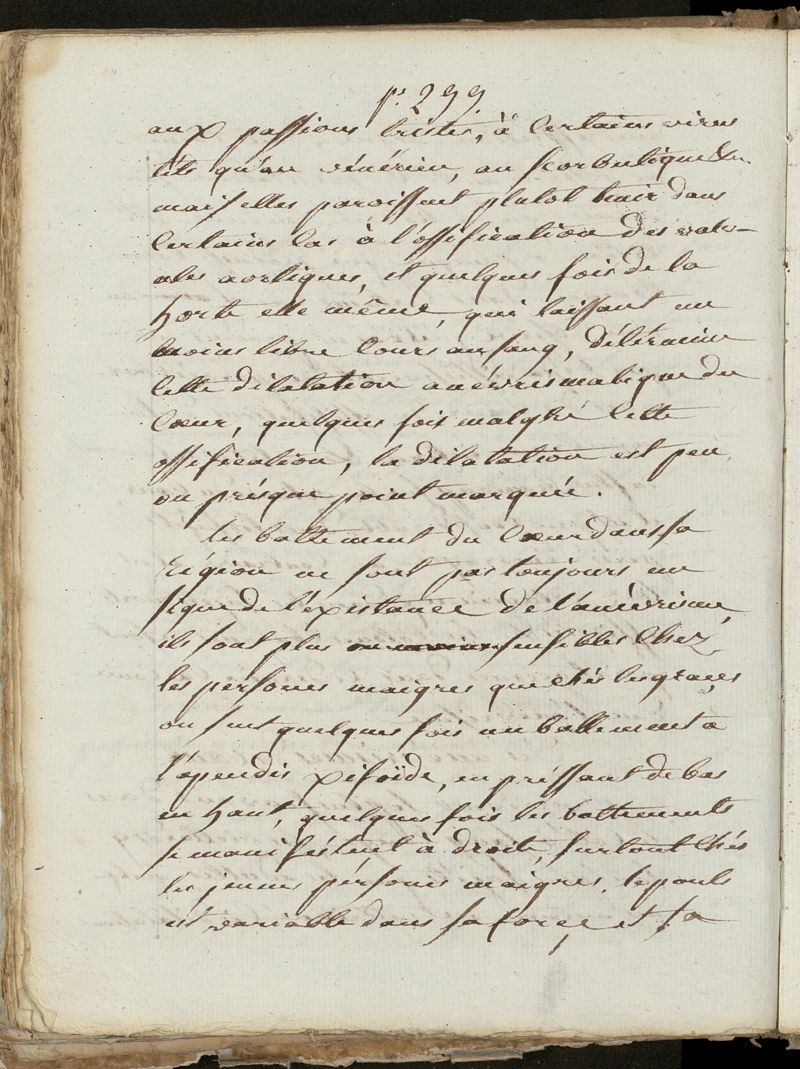 p. 299.
aux passions tristes, à certains virus
tels qu'au vénérien, au scorbutique &c.
mais elles paroissent plutot tenir dans
certains cas à l'ossification des valv-
ules aortiques, et quelques fois de la
horte elle même, qui laissant un
moins libre cours au sang, détérmine
cette dilatation anévrismatique du
cœur, quelques fois malgré cette
ossification, la dilatation est peu,
ou présque point marquée.
les battement du cœur dans sa
région ne sont pas toujours un
signe de l'éxistance de l'anévrisme,
ils sont plus sensibles chez
les persones maigres que chés les grases,
on sent quelques fois un battement a
l'apendis xifoïde, en préssant de bas
en haut, quelques fois les battements
se maniféstent à droite, surtout chés
les jeunes pérsones maigres. le pouls
est variable dans sa force, et sa